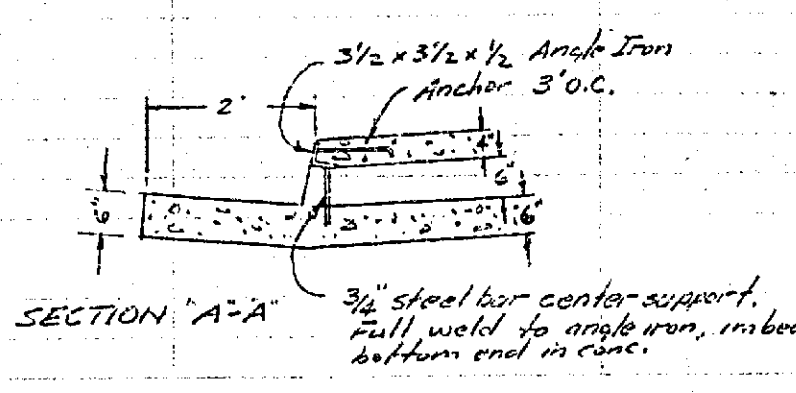 3½ x 3½ x ½ Angle Iron
Anchor 3' O.C.
2'
4"
6"
6"
6"
SECTION "A-A"
3/4" steel bar center support.
Full weld to angle iron, imbed
bottom end in conc.